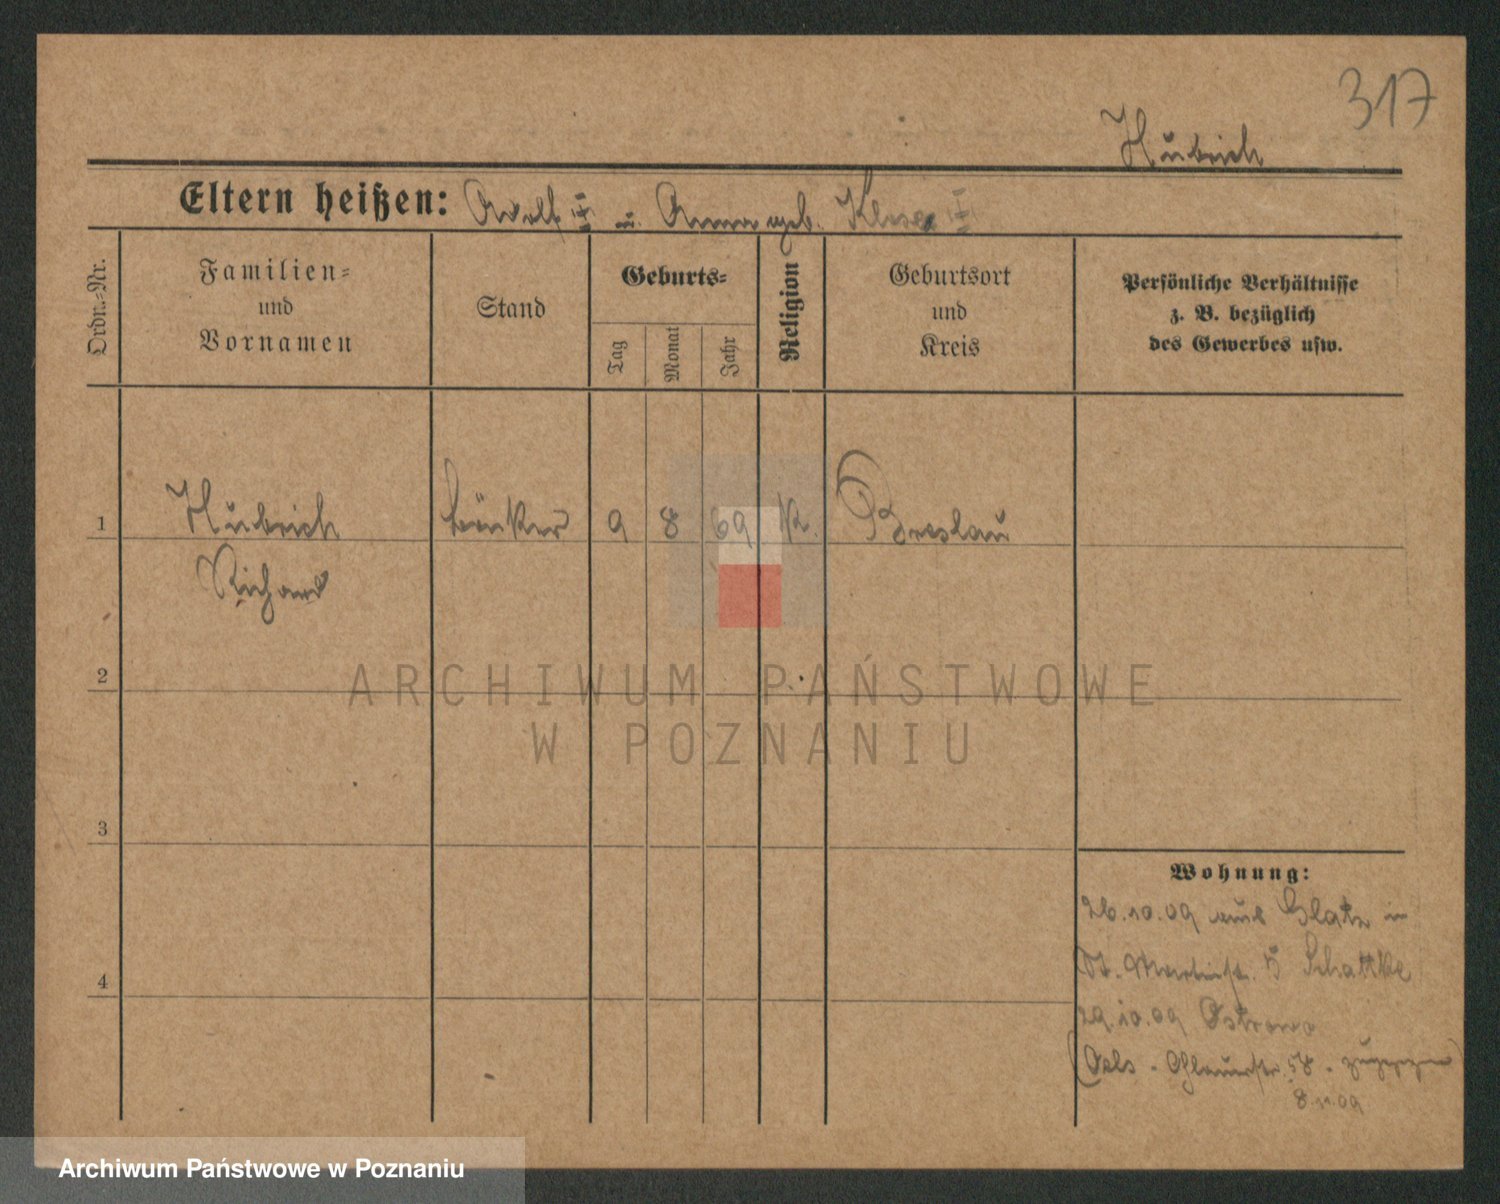 317
Hubrich
Eltern heißen: Adolf u. Anna geb. Klose
Ordn.-Nr.
Familien-
und
Vornamen
Stand
Geburts-
Tag
Monat
Jahr
Religion
Geburtsort
und
Kreis
Persönliche Verhältnisse
z. B. bezüglich
des Gewerbes usw.
1 Hubrich 9 8 69 K. Breslau
Richard
2
3
4
ARCHIWUM PAŃSTWOWE
W POZNANIU
Wohnung:
26.10.09 aus Glatz in
St. Martinstr. 5 Schattke
29.10.09 Ostrowo
(Oels - Ohlauerstr. 58 - zugezogen)
8.11.09
Archiwum Państwowe w Poznaniu